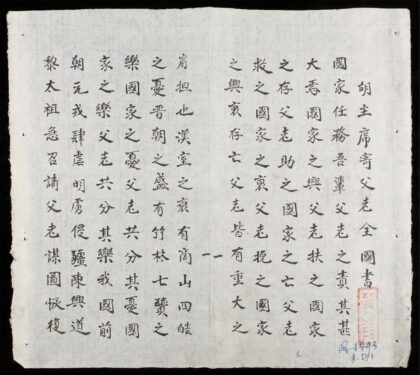 胡主席寄父老全國書
國家任務吾輩父老之責其甚
大焉國家之興父老扶之國家
之存父老助之國家之亡父老
救之國家之衰父老挽之國家
之興衰存亡父老皆有重大之
肩担也漢室之衰有商山四皓
之憂晋朝之盛有竹林七賢之
樂國家之憂父老共分其憂國
家之樂父老共分其樂我國前
朝元戎肆虐明虜侵疆陳興道
黎太祖急召請父老謀國恢復